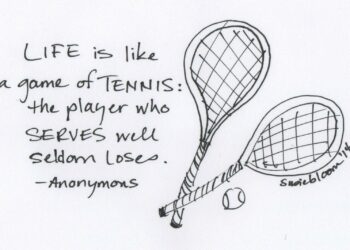 LIFE is like
a game of TENNIS:
the player who
SERVES well
seldom loses.
-Anonymous
susiebloom '14